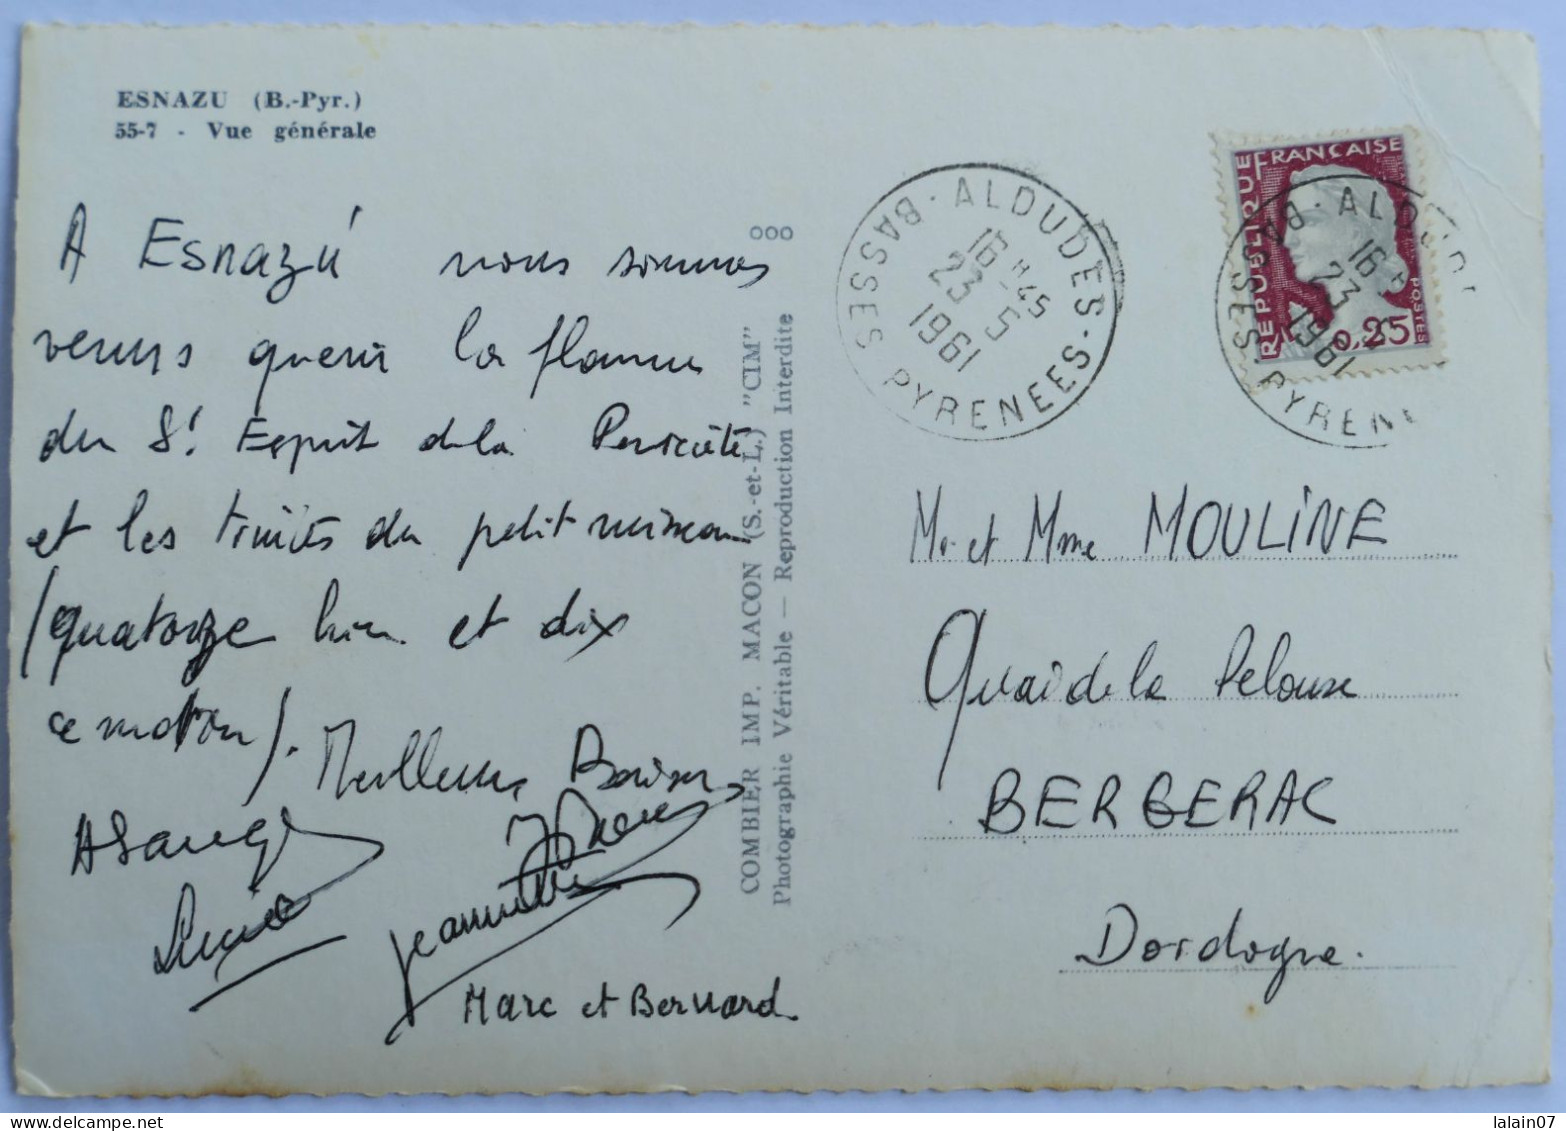 ESNAZU (B.-Pyr.)
55-7 - Vue générale
A Esnazú nous sommes
venus querir la flamme
du St Esprit de la Pentecôte
et les truites du petit ruisseau
(quatorze hier et dix
ce matin). Meilleurs Baisers
Lucie
Jeannette
Marc et Bernard
ooo
COMBIER IMP. MACON (S.-et-L.) "CIM"
Photographie Véritable — Reproduction Interdite
ALDUDES
BASSES PYRENEES
16H45
23-5
1961
REPUBLIQUE FRANÇAISE
POSTES
0,25
ALDUDES
BASSES-PYRENE
16H
23
1961
Mr et Mme MOULINE
Quai de la Pelouse
BERGERAC
Dordogne.
www.delcampe.net
lalain07